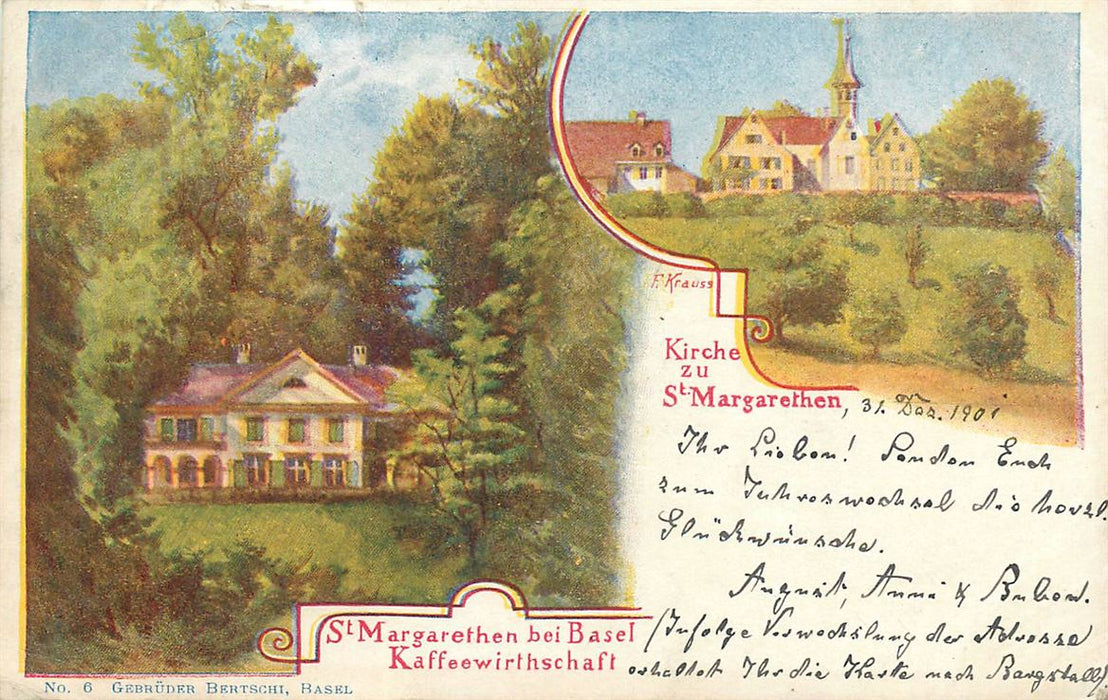 F. Krauss
Kirche
zu
St. Margarethen, 31. Dez. 1901
Ihr Lieben! Senden Euch
zum Jahreswechsel die herzl.
Glückwünsche.
August, Anni & Buben.
(Infolge Verwechslung der Adresse
erhaltet Ihr die Karte nach
St Margarethen bei Basel
Kaffeewirthschaft
No. 6 Gebrüder Bertschi, Basel